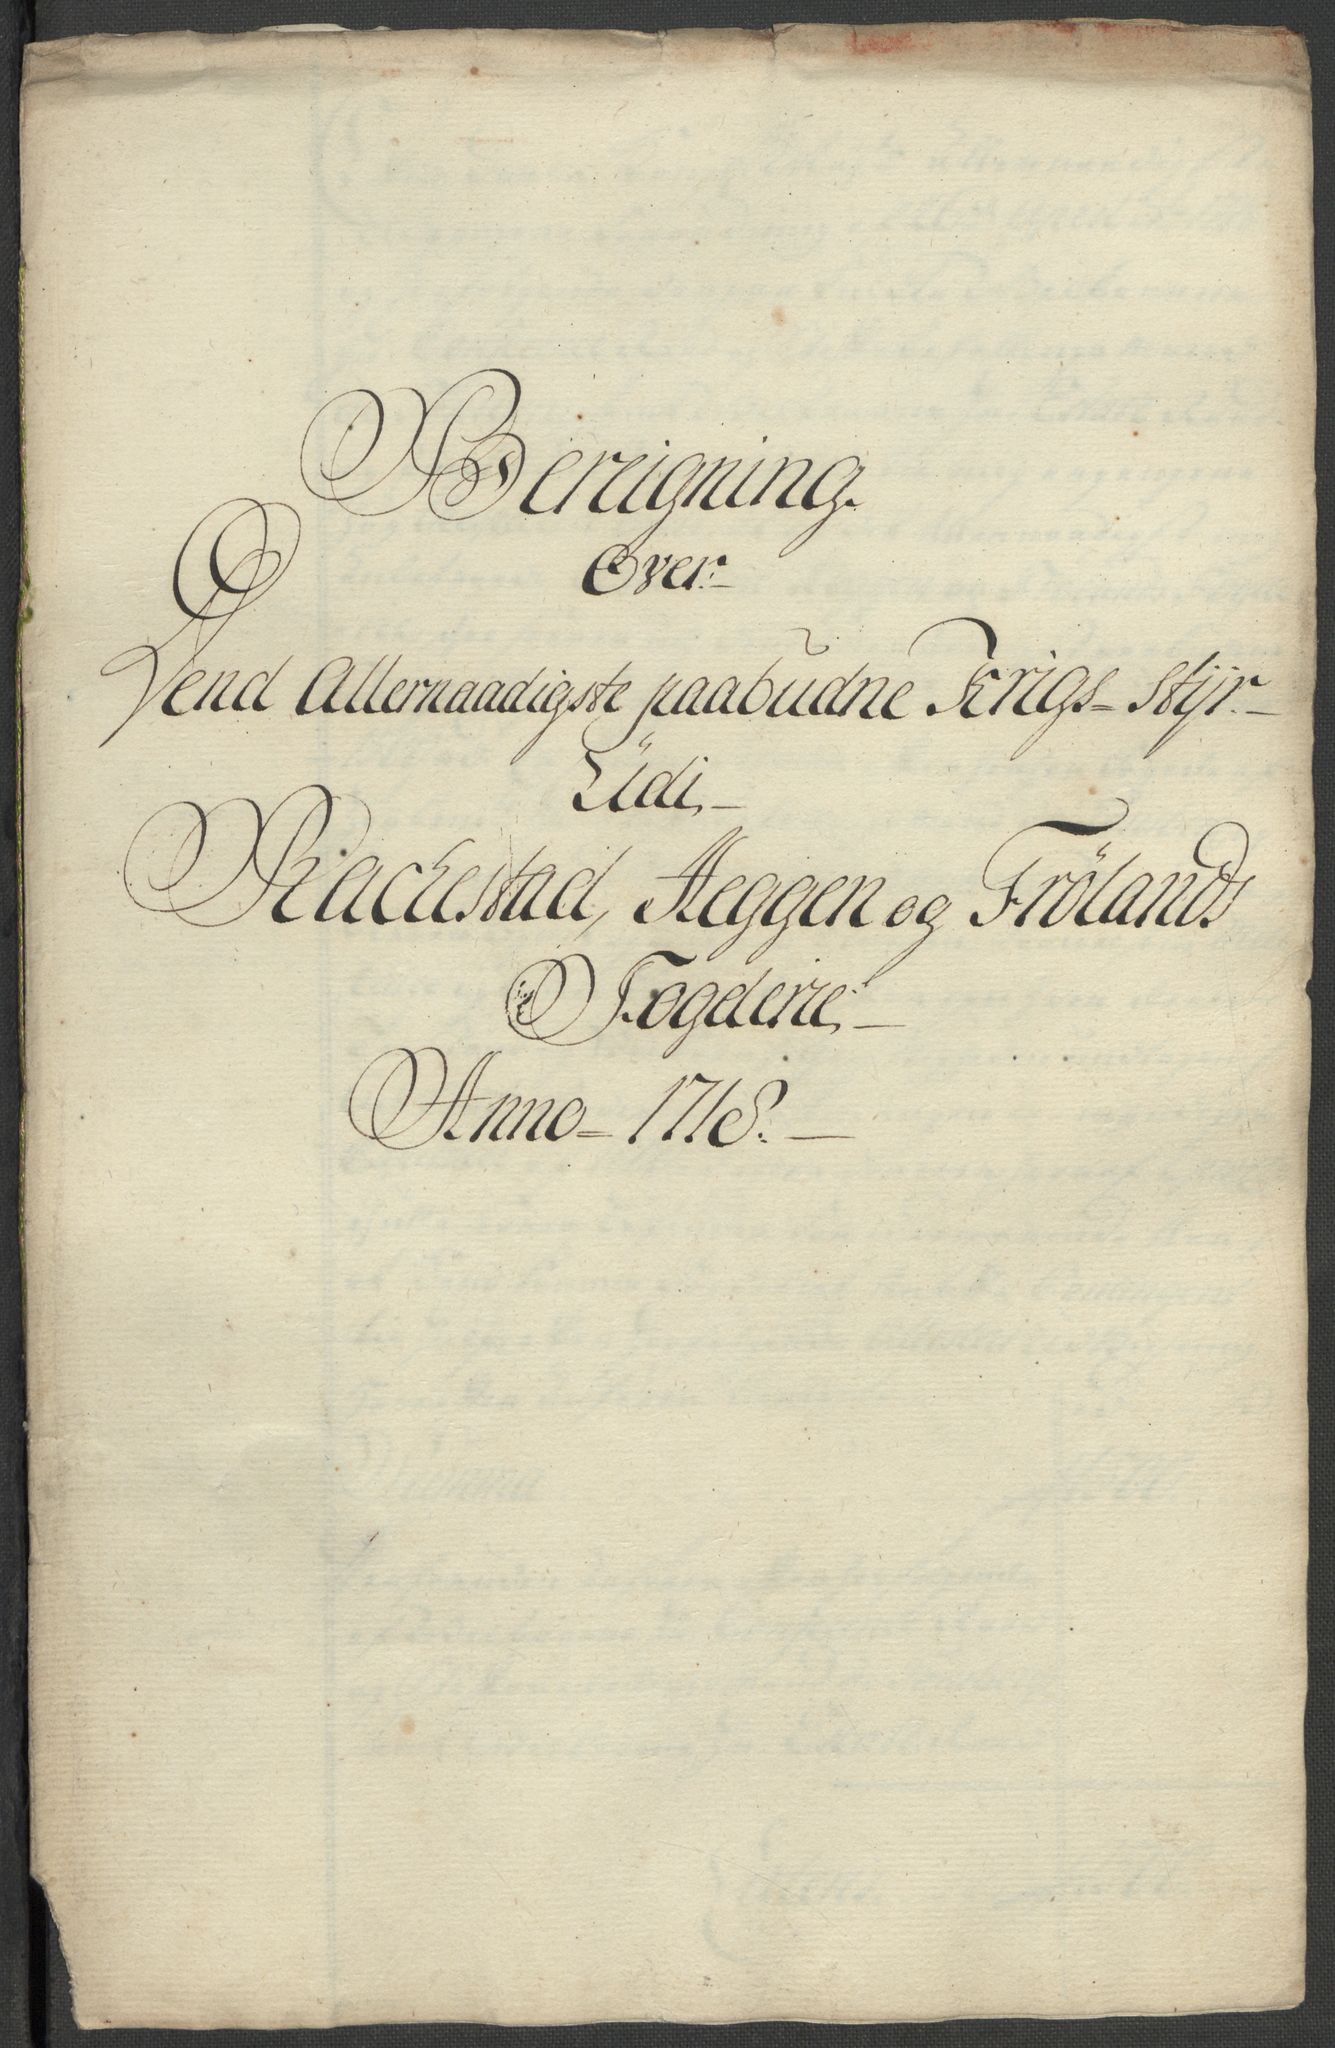 Bereigning.
Over
Dend Allernaadigste paabudne Krigs-Styr
Udi
Rackestad, Heggen og Frölands
Fogderie
Anno 1718.